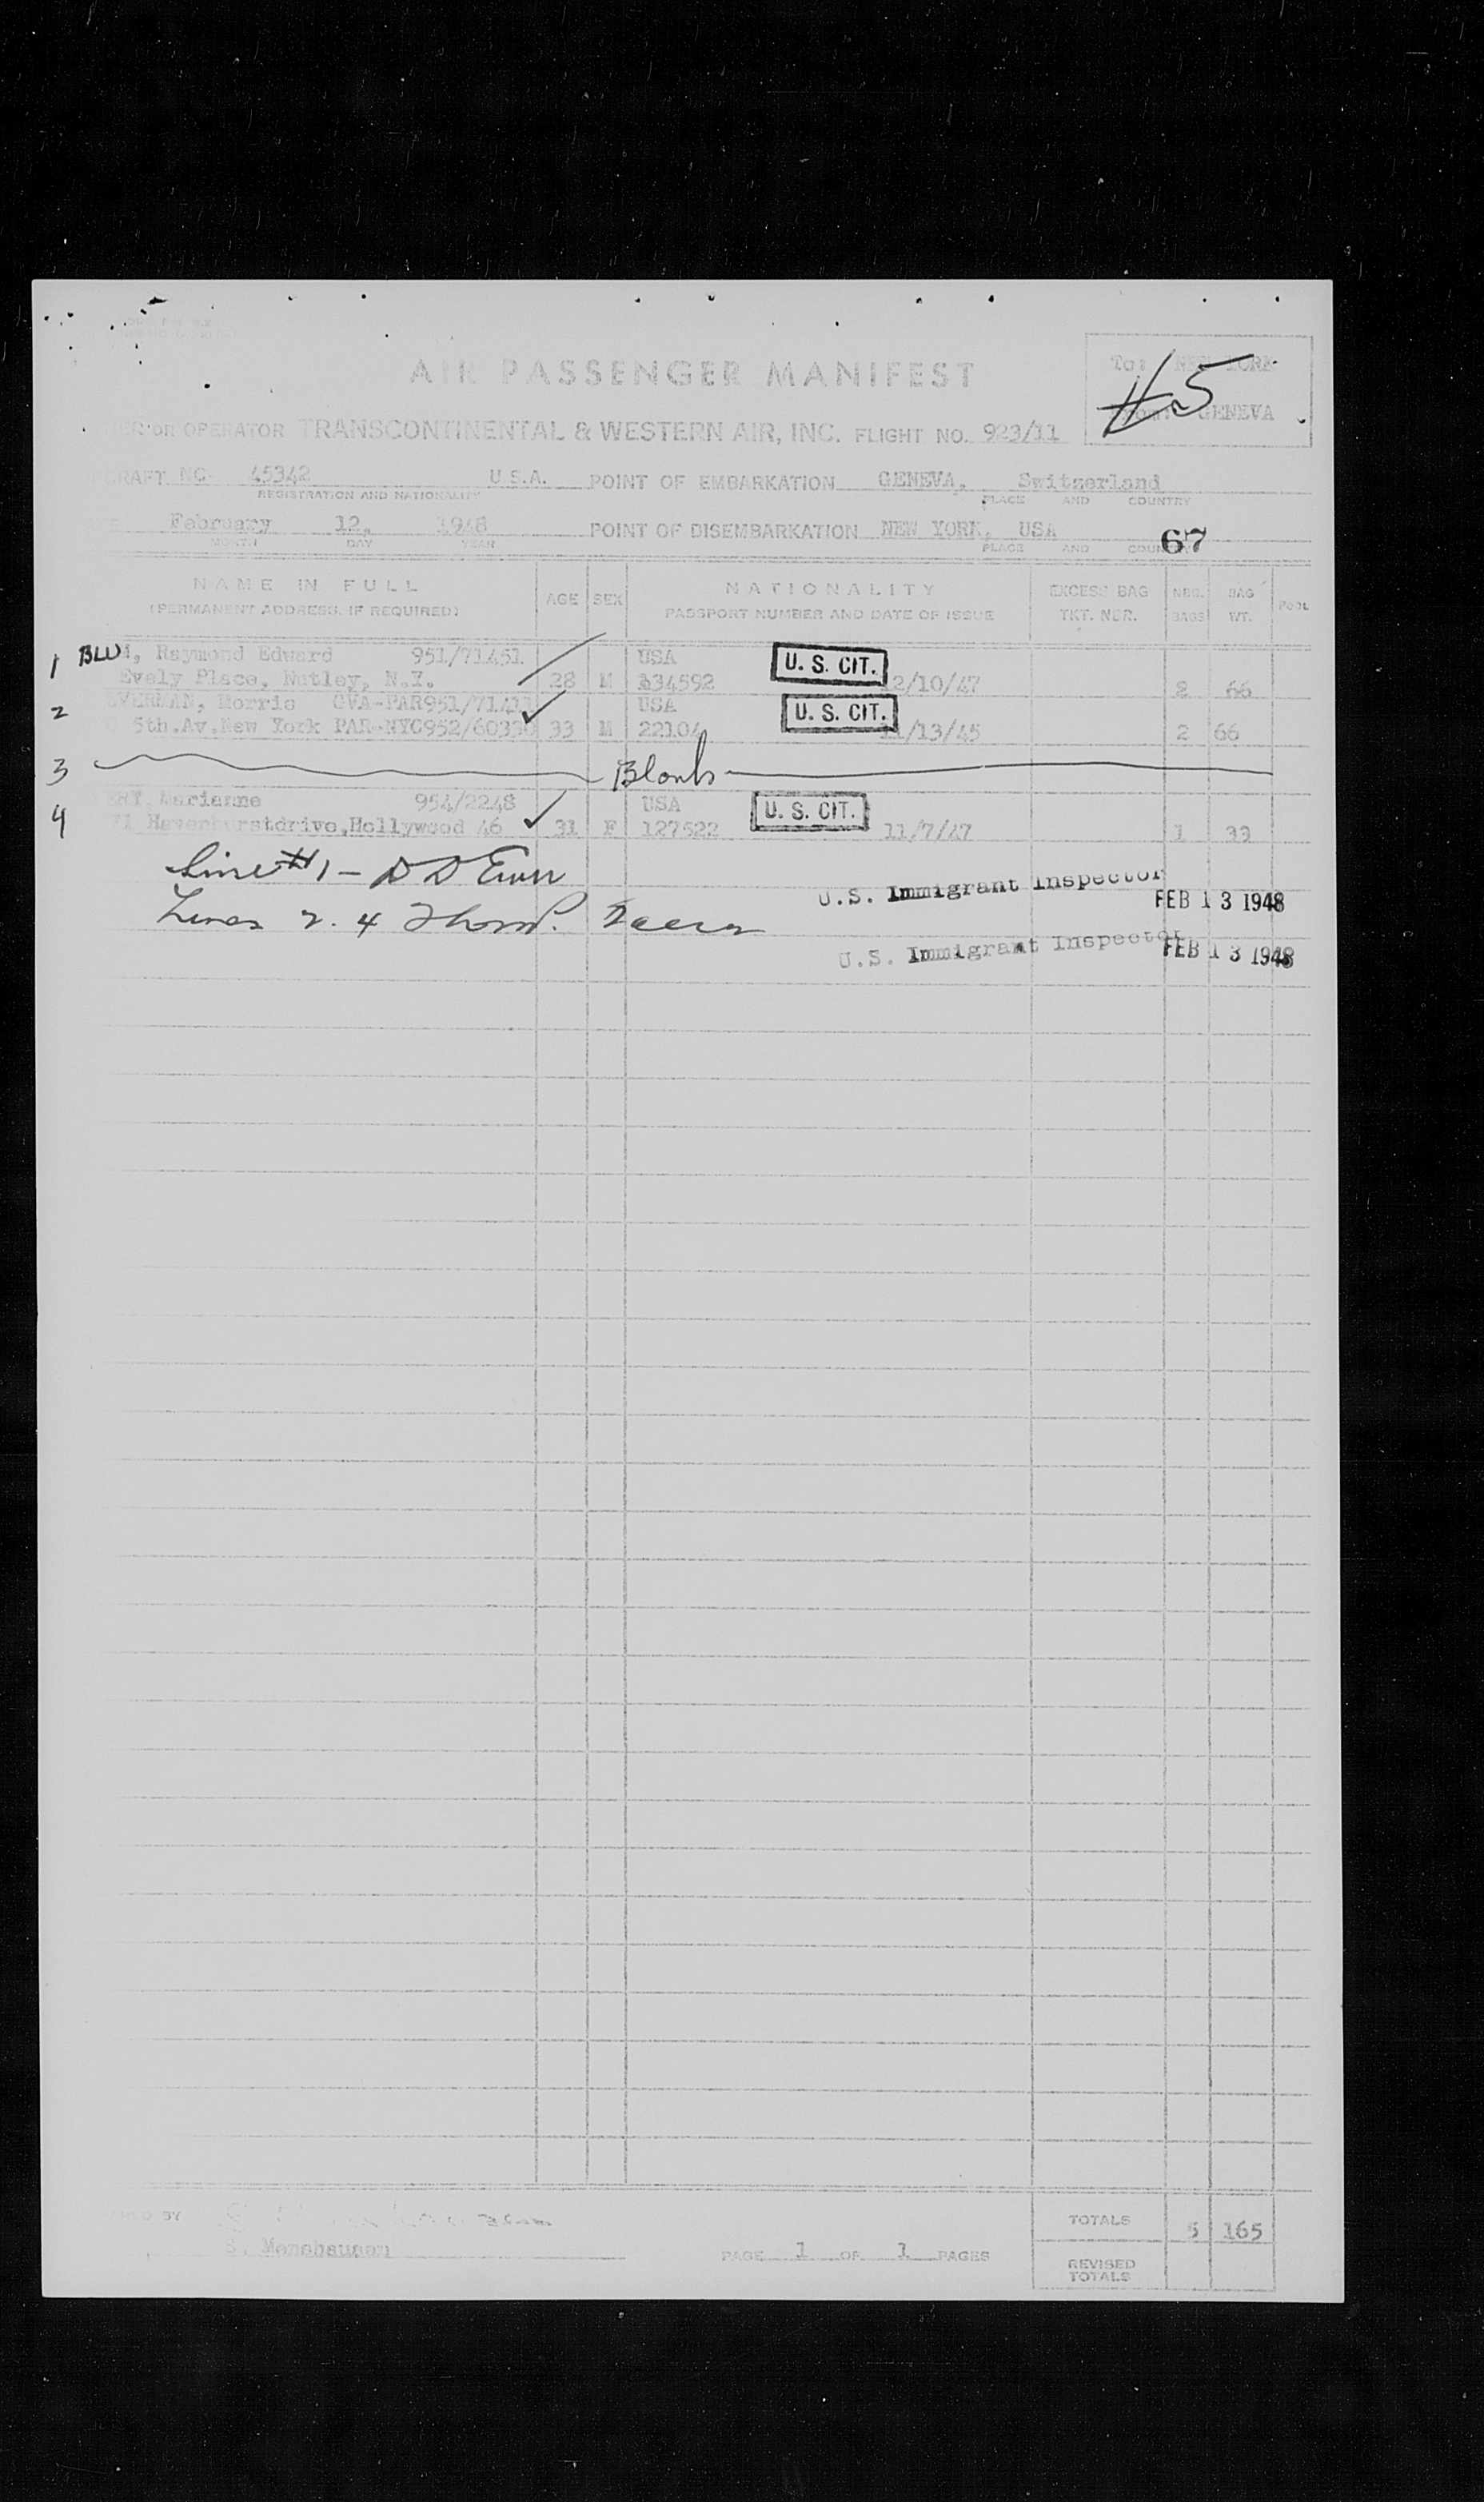 AIR PASSENGER MANIFEST
To: NEW YORK
#5
GENEVA
OR OPERATOR TRANSCONTINENTAL & WESTERN AIR, INC. FLIGHT NO. 923/11
CRAFT NO. 45342 U.S.A. POINT OF EMBARKATION GENEVA, Switzerland
REGISTRATION AND NATIONALITY PLACE AND COUNTRY
February 12, 1948 POINT OF DISEMBARKATION NEW YORK, USA
MONTH DAY YEAR PLACE AND COUNTRY
67
NAME IN FULL AGE SEX NATIONALITY EXCESS BAG NBR. BAG POOL
(PERMANENT ADDRESS, IF REQUIRED) PASSPORT NUMBER AND DATE OF ISSUE TKT. NBR. BAGS WT.
1 BLUM, Raymond Edward 951/71451 USA U. S. CIT.
Evely Place, Nutley, N.Y. 28 M 134592 2/10/47 2 66
2 VERMAN, Morris GVA-PAR951/7141 USA U. S. CIT.
5th.Av.New York PAR-NYC952/6033 33 M 22104 11/13/45 2 66
3 Blank
4 Marianne 954/2248 USA U. S. CIT.
71 Havenhurstdrive,Hollywood 46 31 F 127522 11/7/47 1 33
Line #1 - D D
U.S. Immigrant Inspector FEB 13 1948
Lines 2. 4
U.S. Immigrant Inspector FEB 13 1948
BY
TOTALS 5 165
S.
PAGE 1 OF 1 PAGES
REVISED
TOTALS